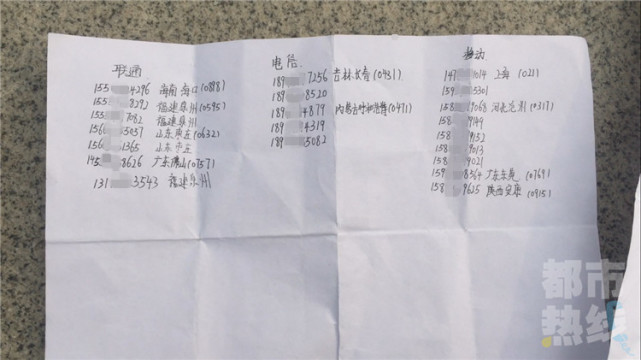 联通
155 4296 海南海口(0898)
155 8292 福建泉州(0595)
155 7082 福建泉州
156 5057 山东枣庄(0632)
156 1365 山东枣庄
145 8626 广东佛山(0757)
131 3543 福建泉州
电信
189 7256 吉林长春(0431)
189 8520
189 4879 内蒙古呼和浩特(0471)
189 4319
189 5082
移动
147 8014 上海(021)
159 5301
158 9068 河北沧州(0317)
158 9149
158 9152
158 9013
158 9021
159 8364 广东东莞(0769)
158 9625 陕西安康(0915)
都市
热线